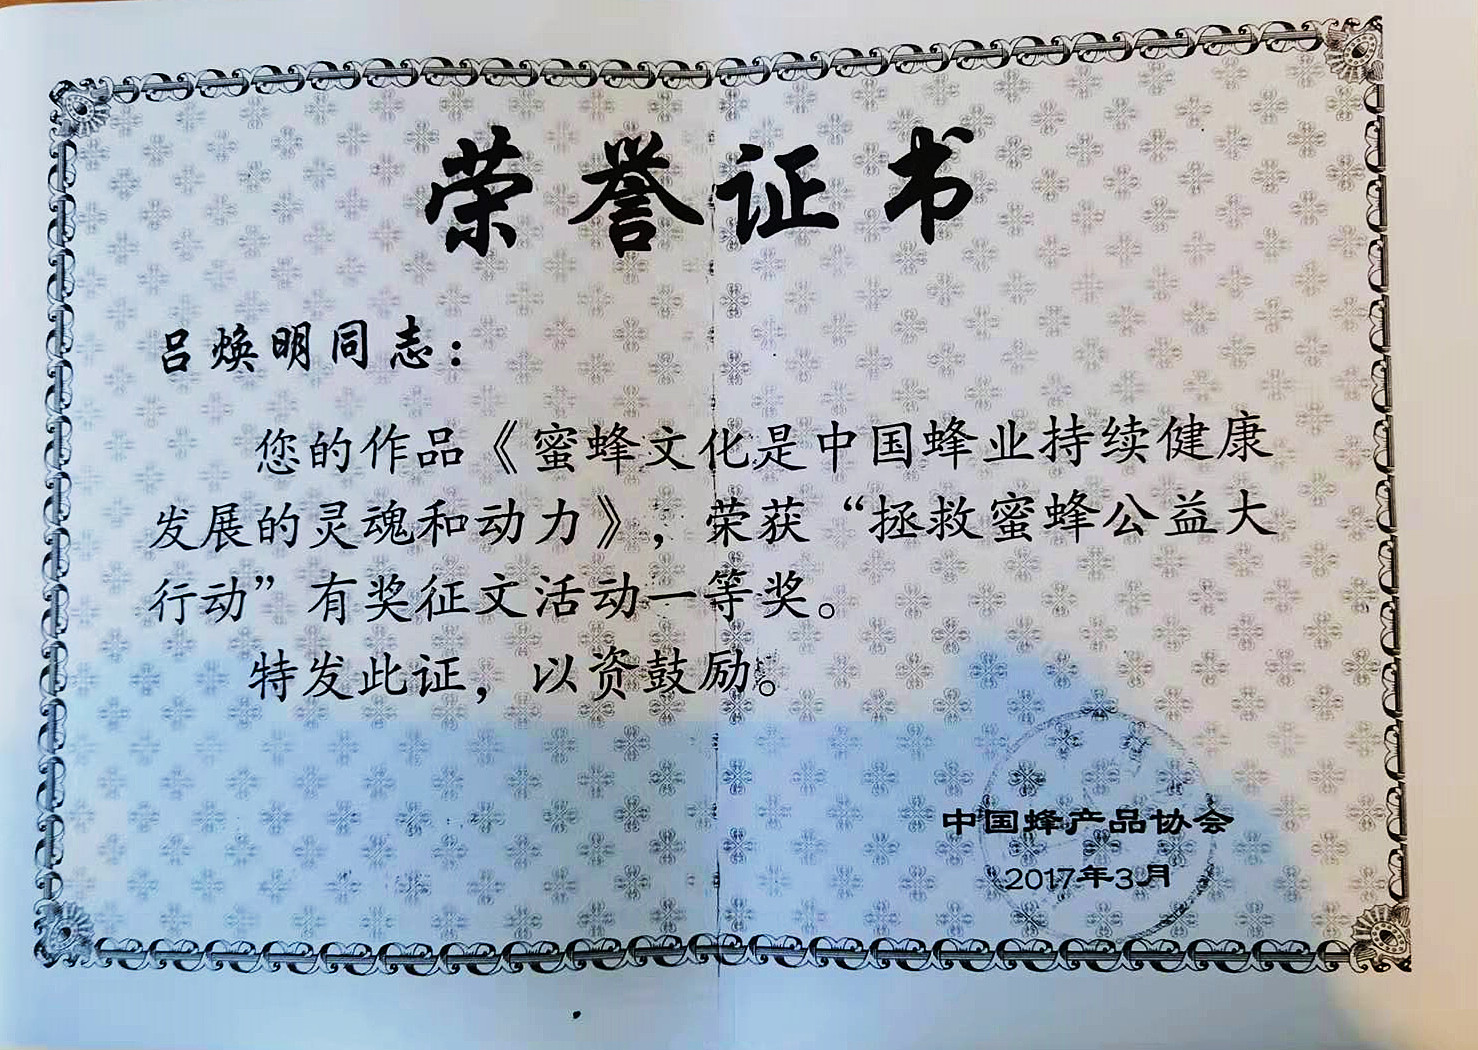 荣誉证书
吕焕明同志：
您的作品《蜜蜂文化是中国蜂业持续健康
发展的灵魂和动力》，荣获“拯救蜜蜂公益大
行动”有奖征文活动一等奖。
特发此证，以资鼓励。
中国蜂产品协会
2017年3月